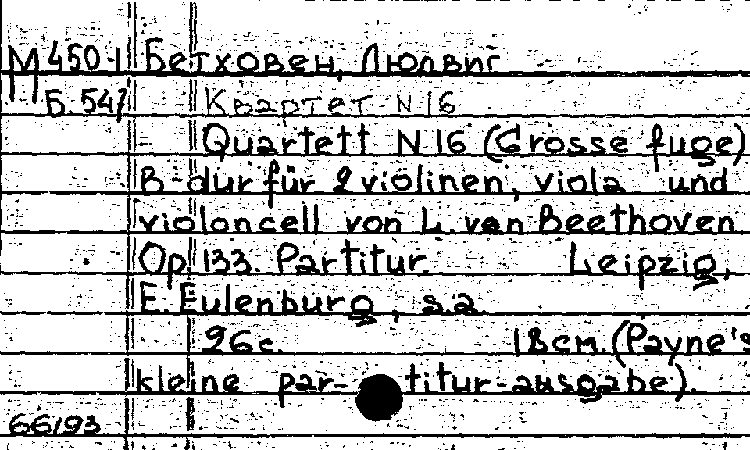 М 450-1 Бетховен, Людвиг
Б.547 Квартет N 16
Quartett N 16 (Grosse fuge)
B-dur für 2 violinen, viola und
violoncell von L. van Beethoven
Op. 133. Partitur. Leipzig,
E. Eulenburg, s.a.
26с. 18см. (Payne's
kleine par-titur-ausgabe).
66193